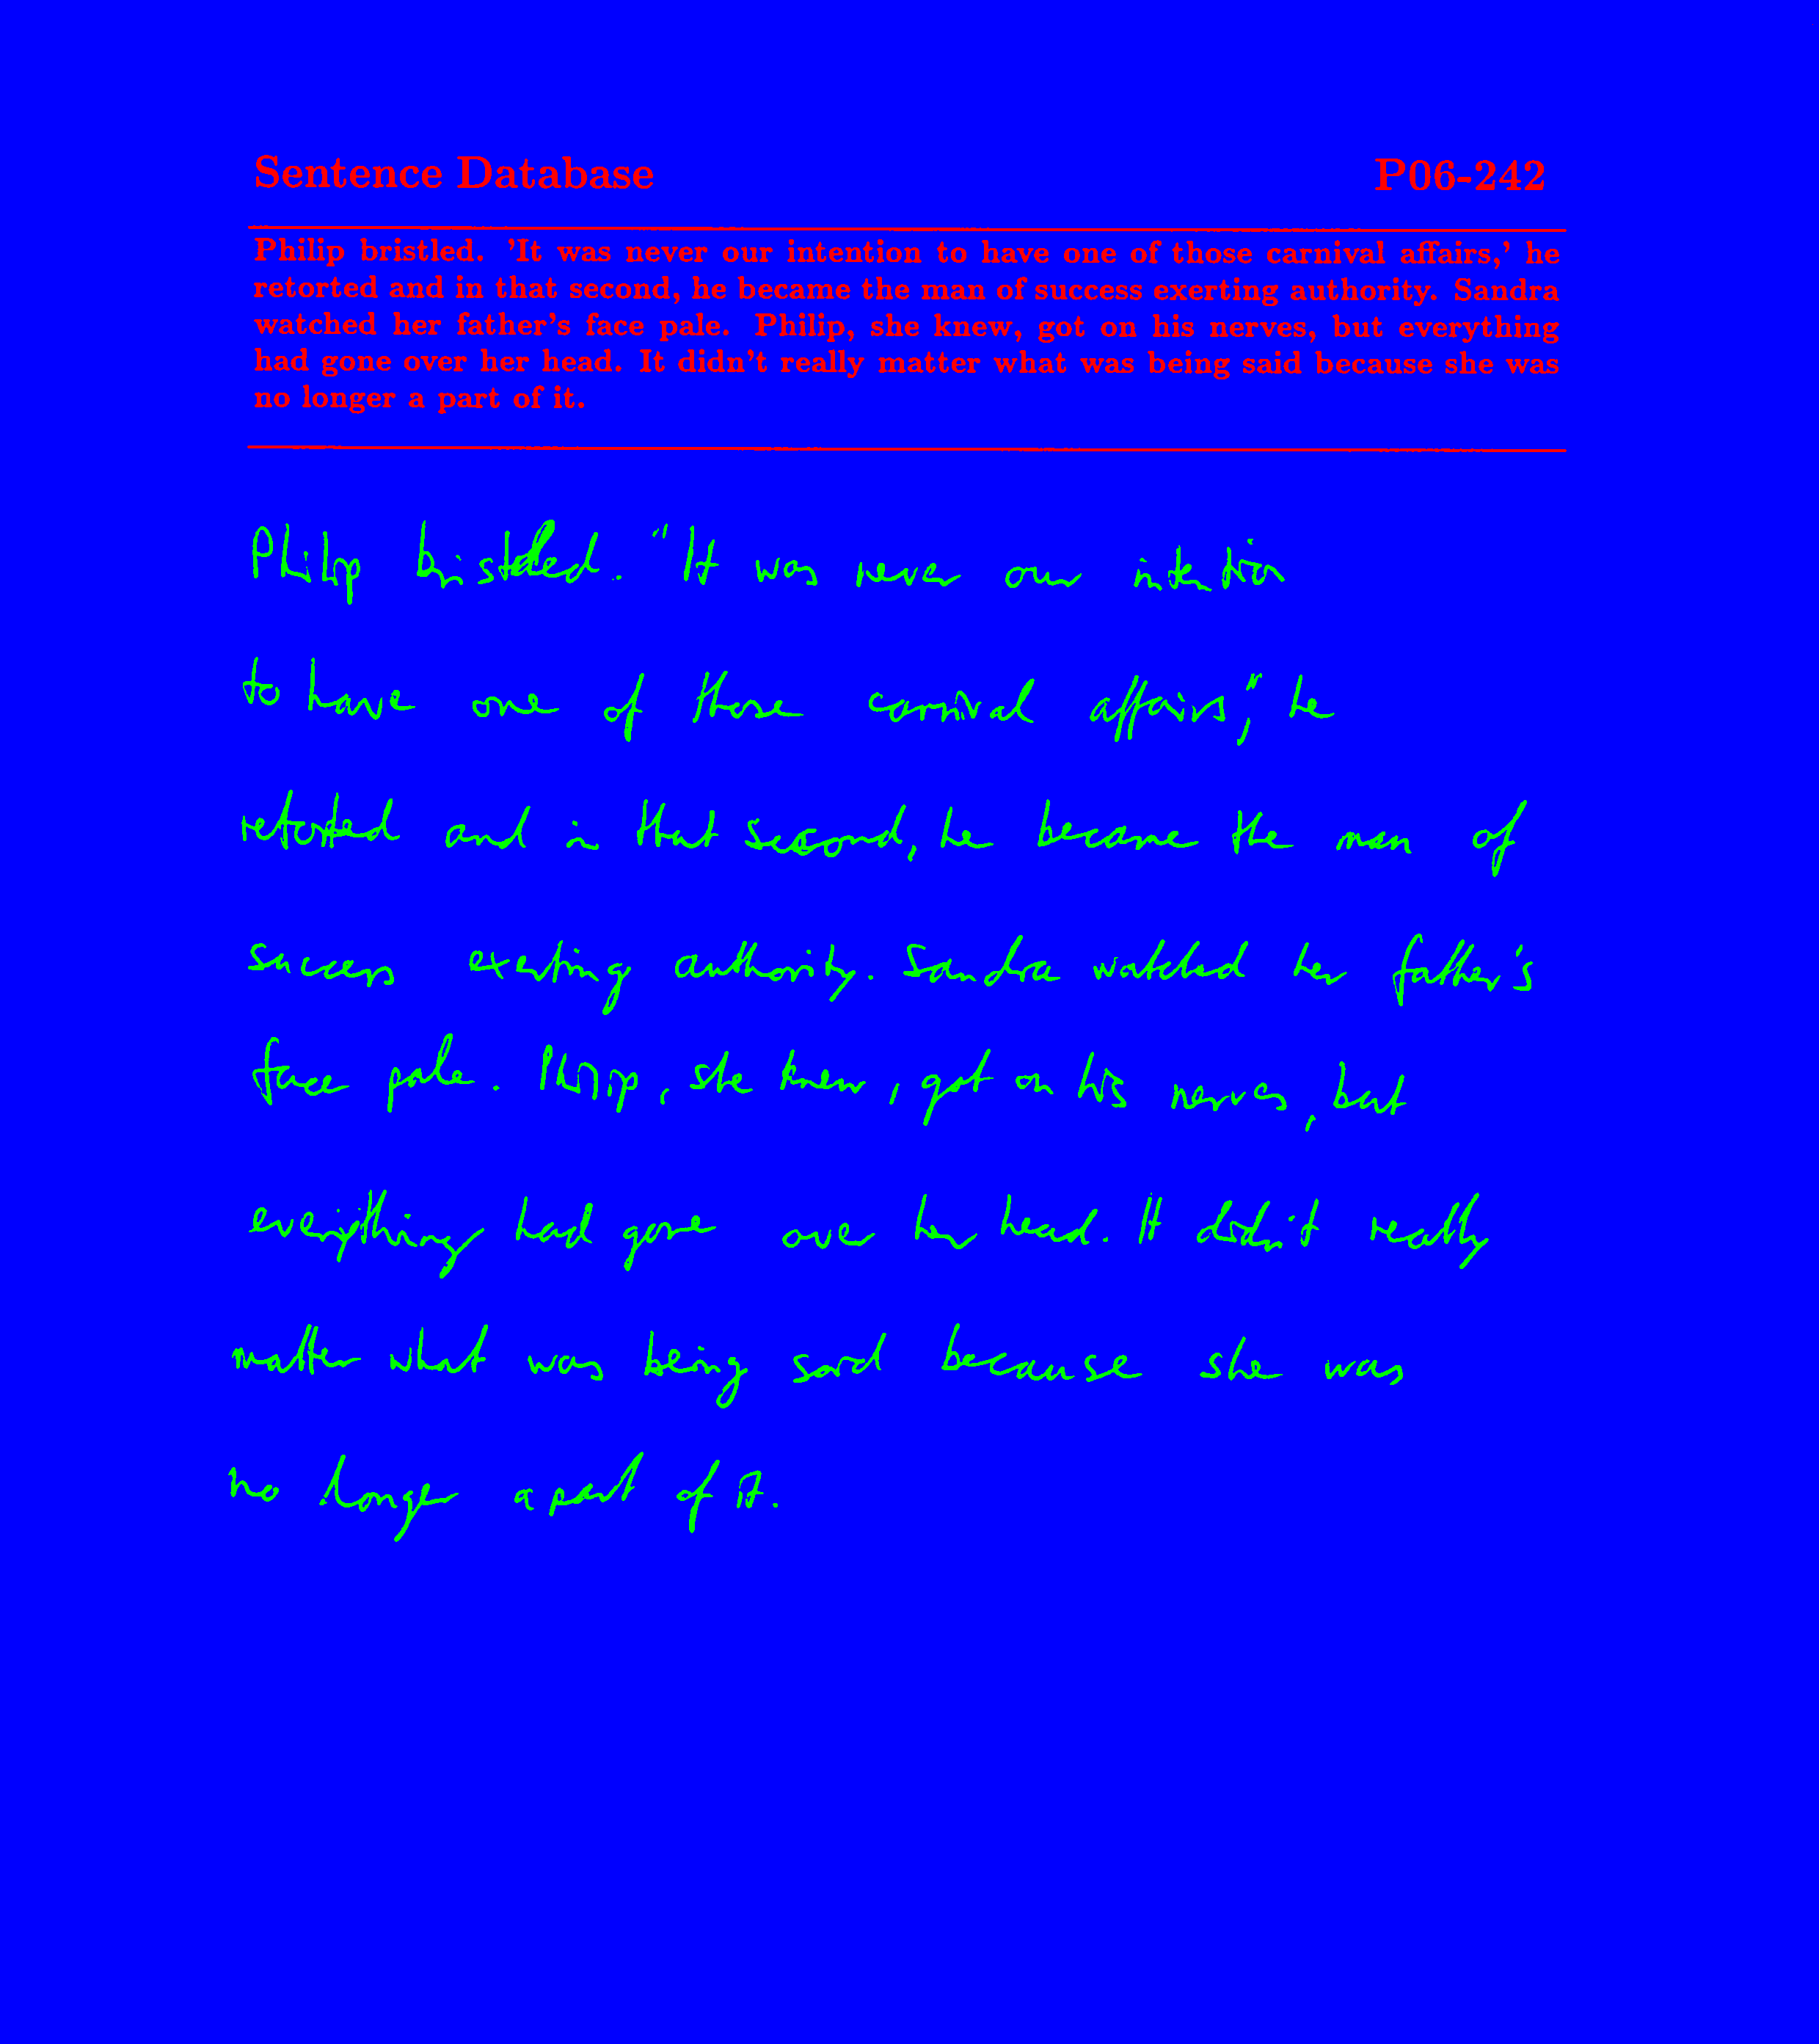 Sentence Database P06-242
Philip bristled. 'It was never our intention to have one of those carnival affairs,' he
retorted and in that second, he became the man of success exerting authority. Sandra
watched her father's face pale. Philip, she knew, got on his nerves, but everything
had gone over her head. It didn't really matter what was being said because she was
no longer a part of it.
Philip bristled. "It was never our intention
to have one of those carnival affairs", he
retorted and in that second, he became the man of
success exerting authority. Sandra watched her father's
face pale. Philip, she knew, got on his nerves, but
everything had gone over her head. It didn't really
matter what was being said because she was
no longer a part of it.